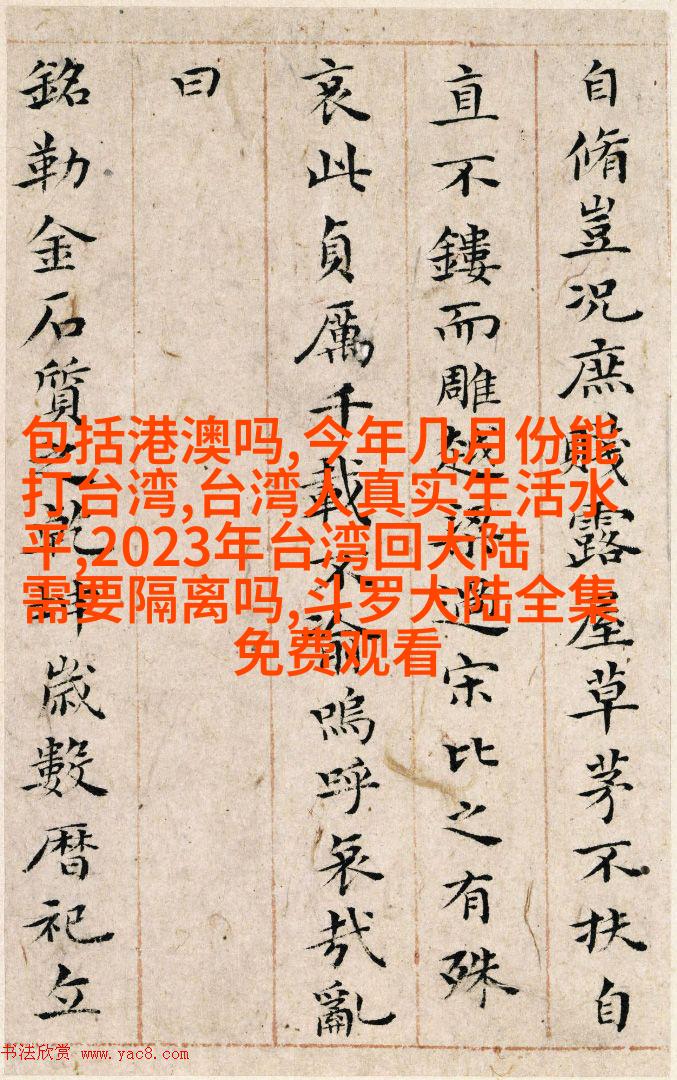 自脩豈況庶賤露屋草茅不扶自
直不鏤而雕越梁過宋比之有殊
哀此貞厲千載不渝嗚呼哀哉亂
曰
銘勒金石質之乾坤歲數暦祀立
包括港澳吗,今年几月份能
打台湾,台湾人真实生活水
平,2023年台湾回大陆
需要隔离吗,斗罗大陆全集
免费观看
书法欣赏 www.yac8.com